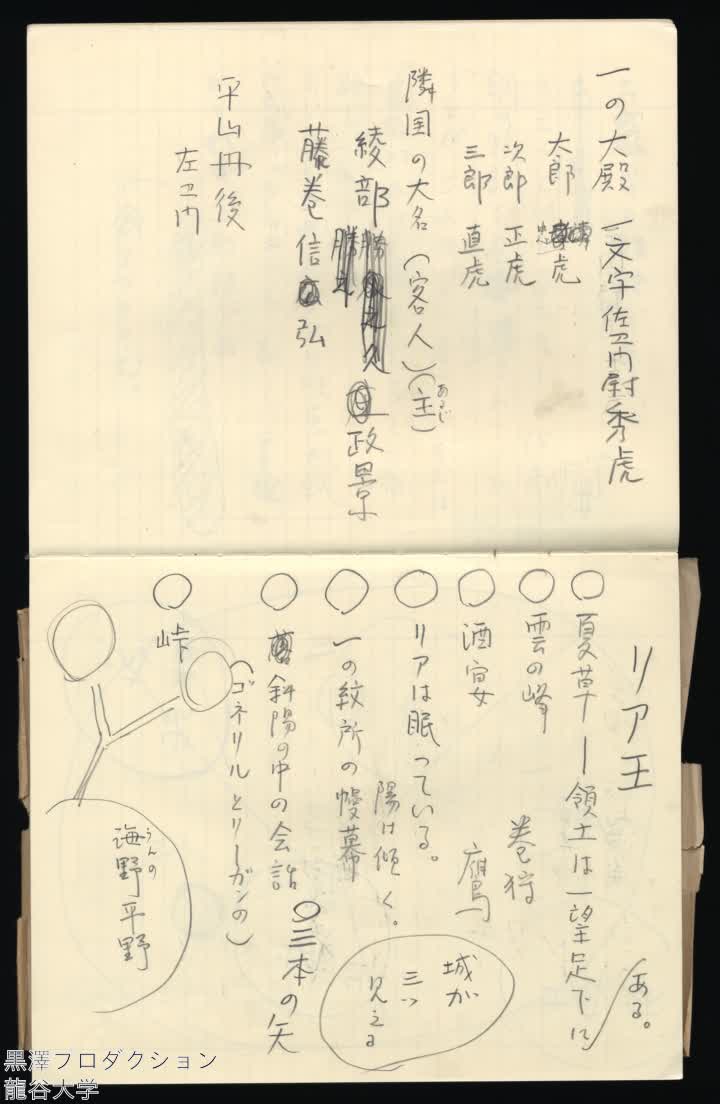 一の大殿 一文字佐ヱ門尉秀虎
太郎 虎
次郎 正虎
三郎 直虎
隣国の大名(客人)(主)
あるじ
綾部 政景
勝之
藤巻信弘
平山丹後
左ヱ門
リア王
○夏草ー領土は一望足下に
ある。
○雲の峰
巻狩
○酒宴
鷹
○リアは眠っている。
陽は傾く。
○一の紋所の幔幕
○斜陽の中の会話
(ゴネリルとリーガンの)
○三本の矢
○峠
城が
三つ
見える
うんの
海野平野
黒澤プロダクション
龍谷大学